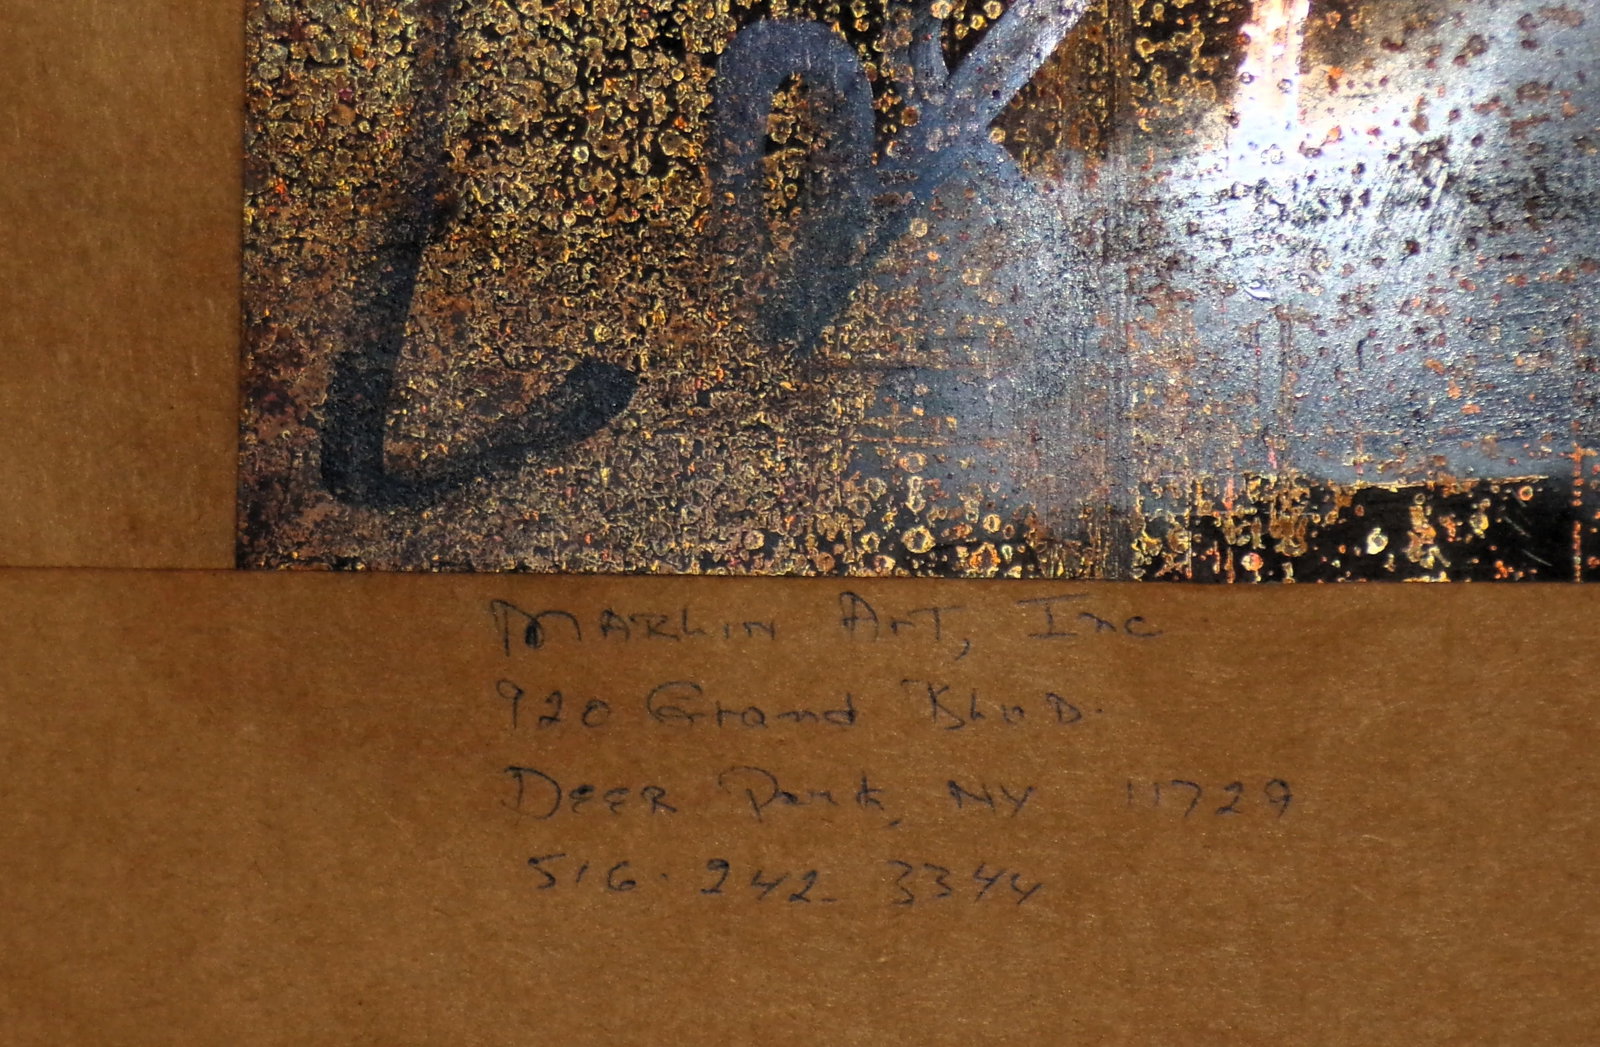 Marlin Art, Inc
920 Grand Blvd.
Deer Park, NY 11729
516-242-3344